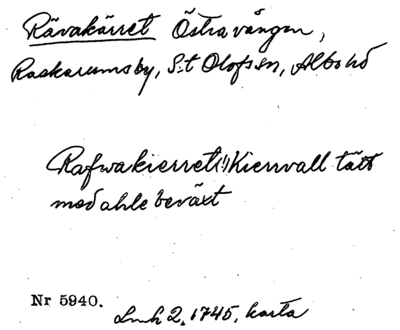 Rävakärret Östra vången,
Raskarums by, S:t Olofs sn, Albo hd
Rafwakierret(!) Kierrvall tätt
med ahle beväxt
Nr 5940.
Lmh 2, 1745, karta